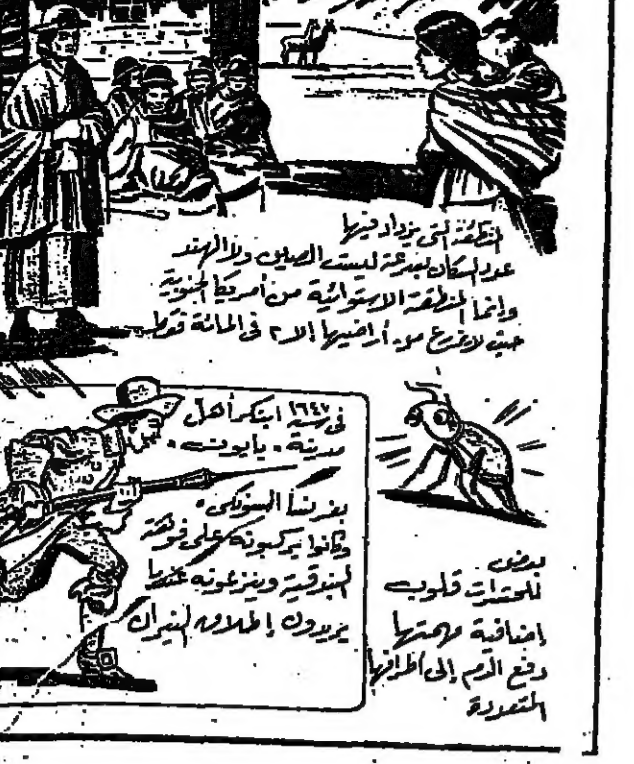 المنطقة التى يزداد فيها
عدد السكان بسرعة ليست الصين ولا الهند
وإنما المنطقة الاستوائية من أمريكا الجنوبية
حيث لا يزرع من أراضيها إلا ٢ فى المائة فقط
فى سنة ١٦٤٧ ابتكر أهل
مدينة " بايون "
بفرنسا السونكى "
وكانوا يركبونه على فوهة
البندقية وينزعونه عندما
يريدون إطلاق النيران
بعض
للحشرات قلوب
إضافية مهمتها
دفع الدم إلى أطرافها
المتعددة